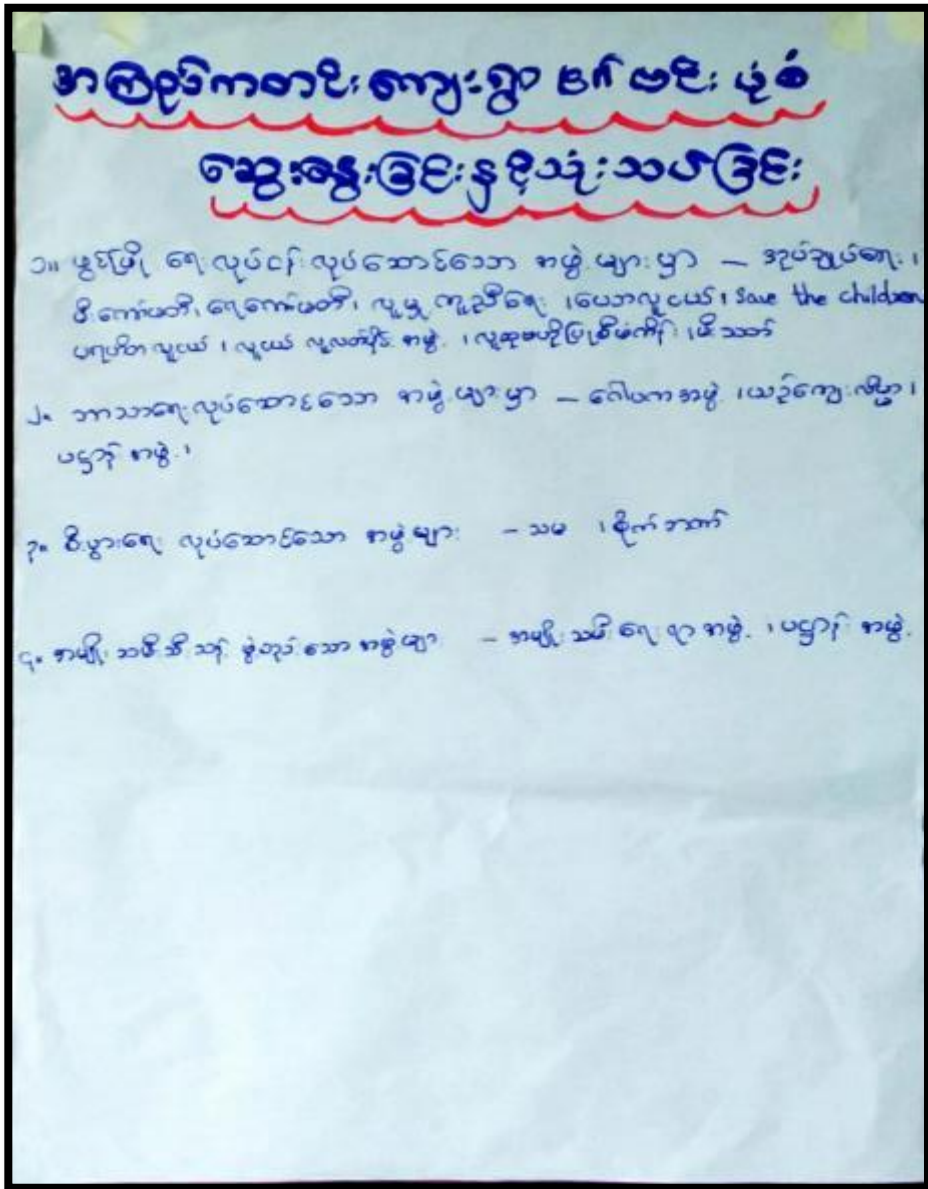 အကြည်ကတင်းကျေးရွာ ဗင်းပုံစံ
ဆွေးနွေးခြင်းနှင့်သုံးသပ်ခြင်း
၁။ ဖွံ့ဖြိုးရေးလုပ်ငန်းလုပ်ဆောင်သော အဖွဲ့များမှာ – အုပ်ချုပ်ရေး၊
မီးကော်မတီ၊ ရေကော်မတီ၊ လူမှုကူညီရေး၊ ပညာလူငယ်၊ Save the children
ပရဟိတလူငယ်၊ လူငယ် လူလတ်ပိုင်းအဖွဲ့၊ လူထုဗဟိုပြုစီမံကိန်း၊ မီးသတ်
၂။ ဘာသာရေးလုပ်ဆောင်သော အဖွဲ့များမှာ – ဂေါပကအဖွဲ့၊ ယဉ်ကျေးလိမ္မာ၊
ပဋ္ဌာန်းအဖွဲ့၊
၃။ စီးပွားရေး လုပ်ဆောင်သော အဖွဲ့များ – သမ ၊ စိုက်ဘဏ်
၄။ အမျိုးသမီးသီးသန့် ဖွဲ့စည်းသော အဖွဲ့များ – အမျိုးသမီးရေးရာအဖွဲ့၊ ပဋ္ဌာန်းအဖွဲ့